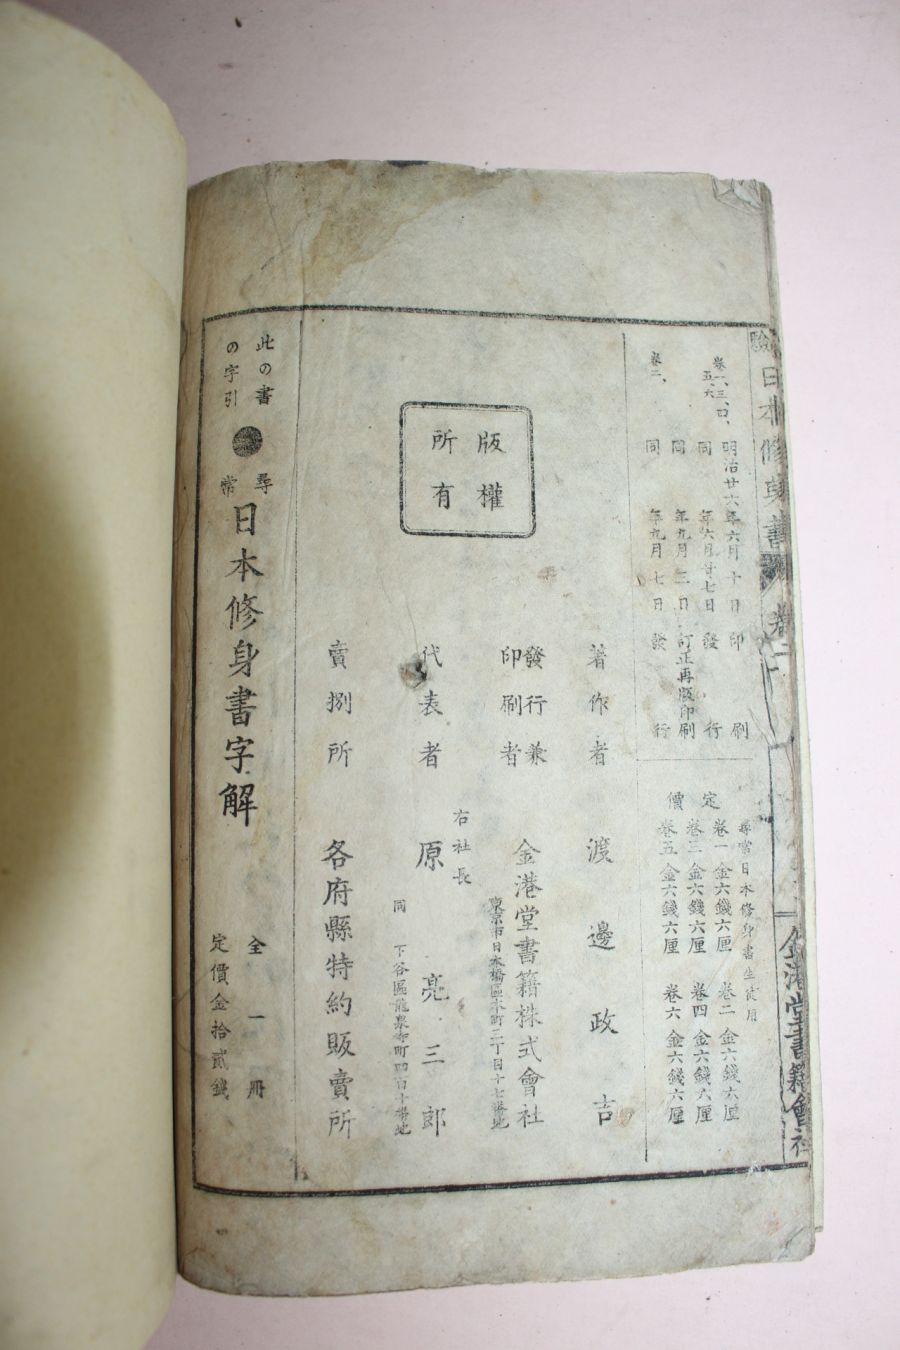 日本修身書
卷二
金港堂書籍會社
卷一、三、四、五、六
明治廿六年六月十日印刷
同年六月廿七日發行
卷二、
同年九月二日訂正再版印刷
同年九月七日發行
尋常日本修身書生徒用
定價
卷一金六錢六厘 卷二金六錢六厘
卷三金六錢六厘 卷四金六錢六厘
卷五金六錢六厘 卷六金六錢六厘
版權所有
著作者 渡邊政吉
發行兼印刷者 金港堂書籍株式會社
東京市日本橋區本町三丁目十七番地
右社長
代表者 原亮三郎
同 下谷區龍泉寺町四百十番地
賣捌所 各府縣特約販賣所
此の書の字引
尋常日本修身書字解 全一冊
定價金拾貳錢